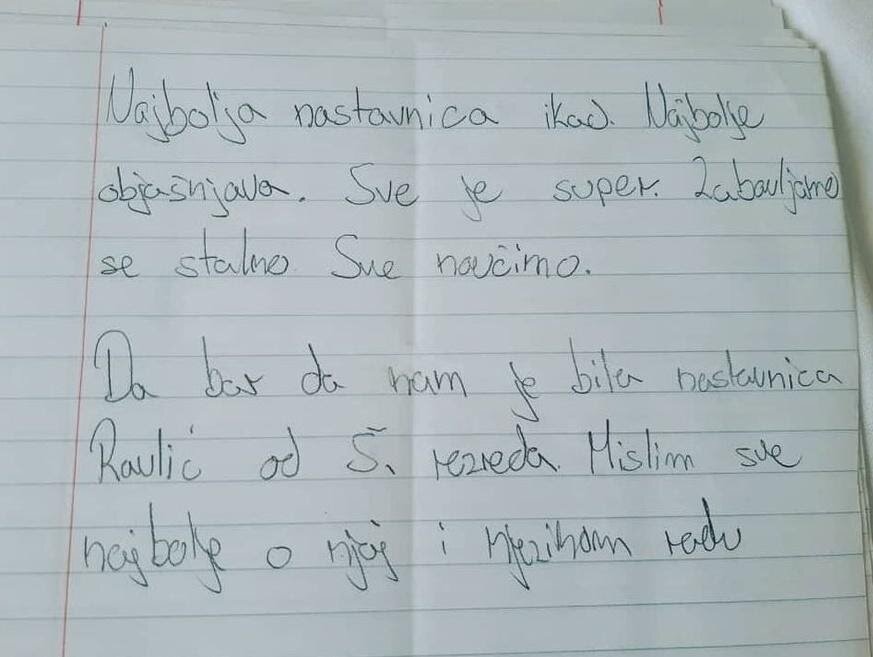 Najbolja nastavnica ikad. Najbolje
objašnjava. Sve je super. Zabavljamo
se stalno. Sve naučimo.
Da bar da nam je bila nastavnica
Raulić od 5. rezreda. Mislim sve
najbolje o njoj i njezinom radu